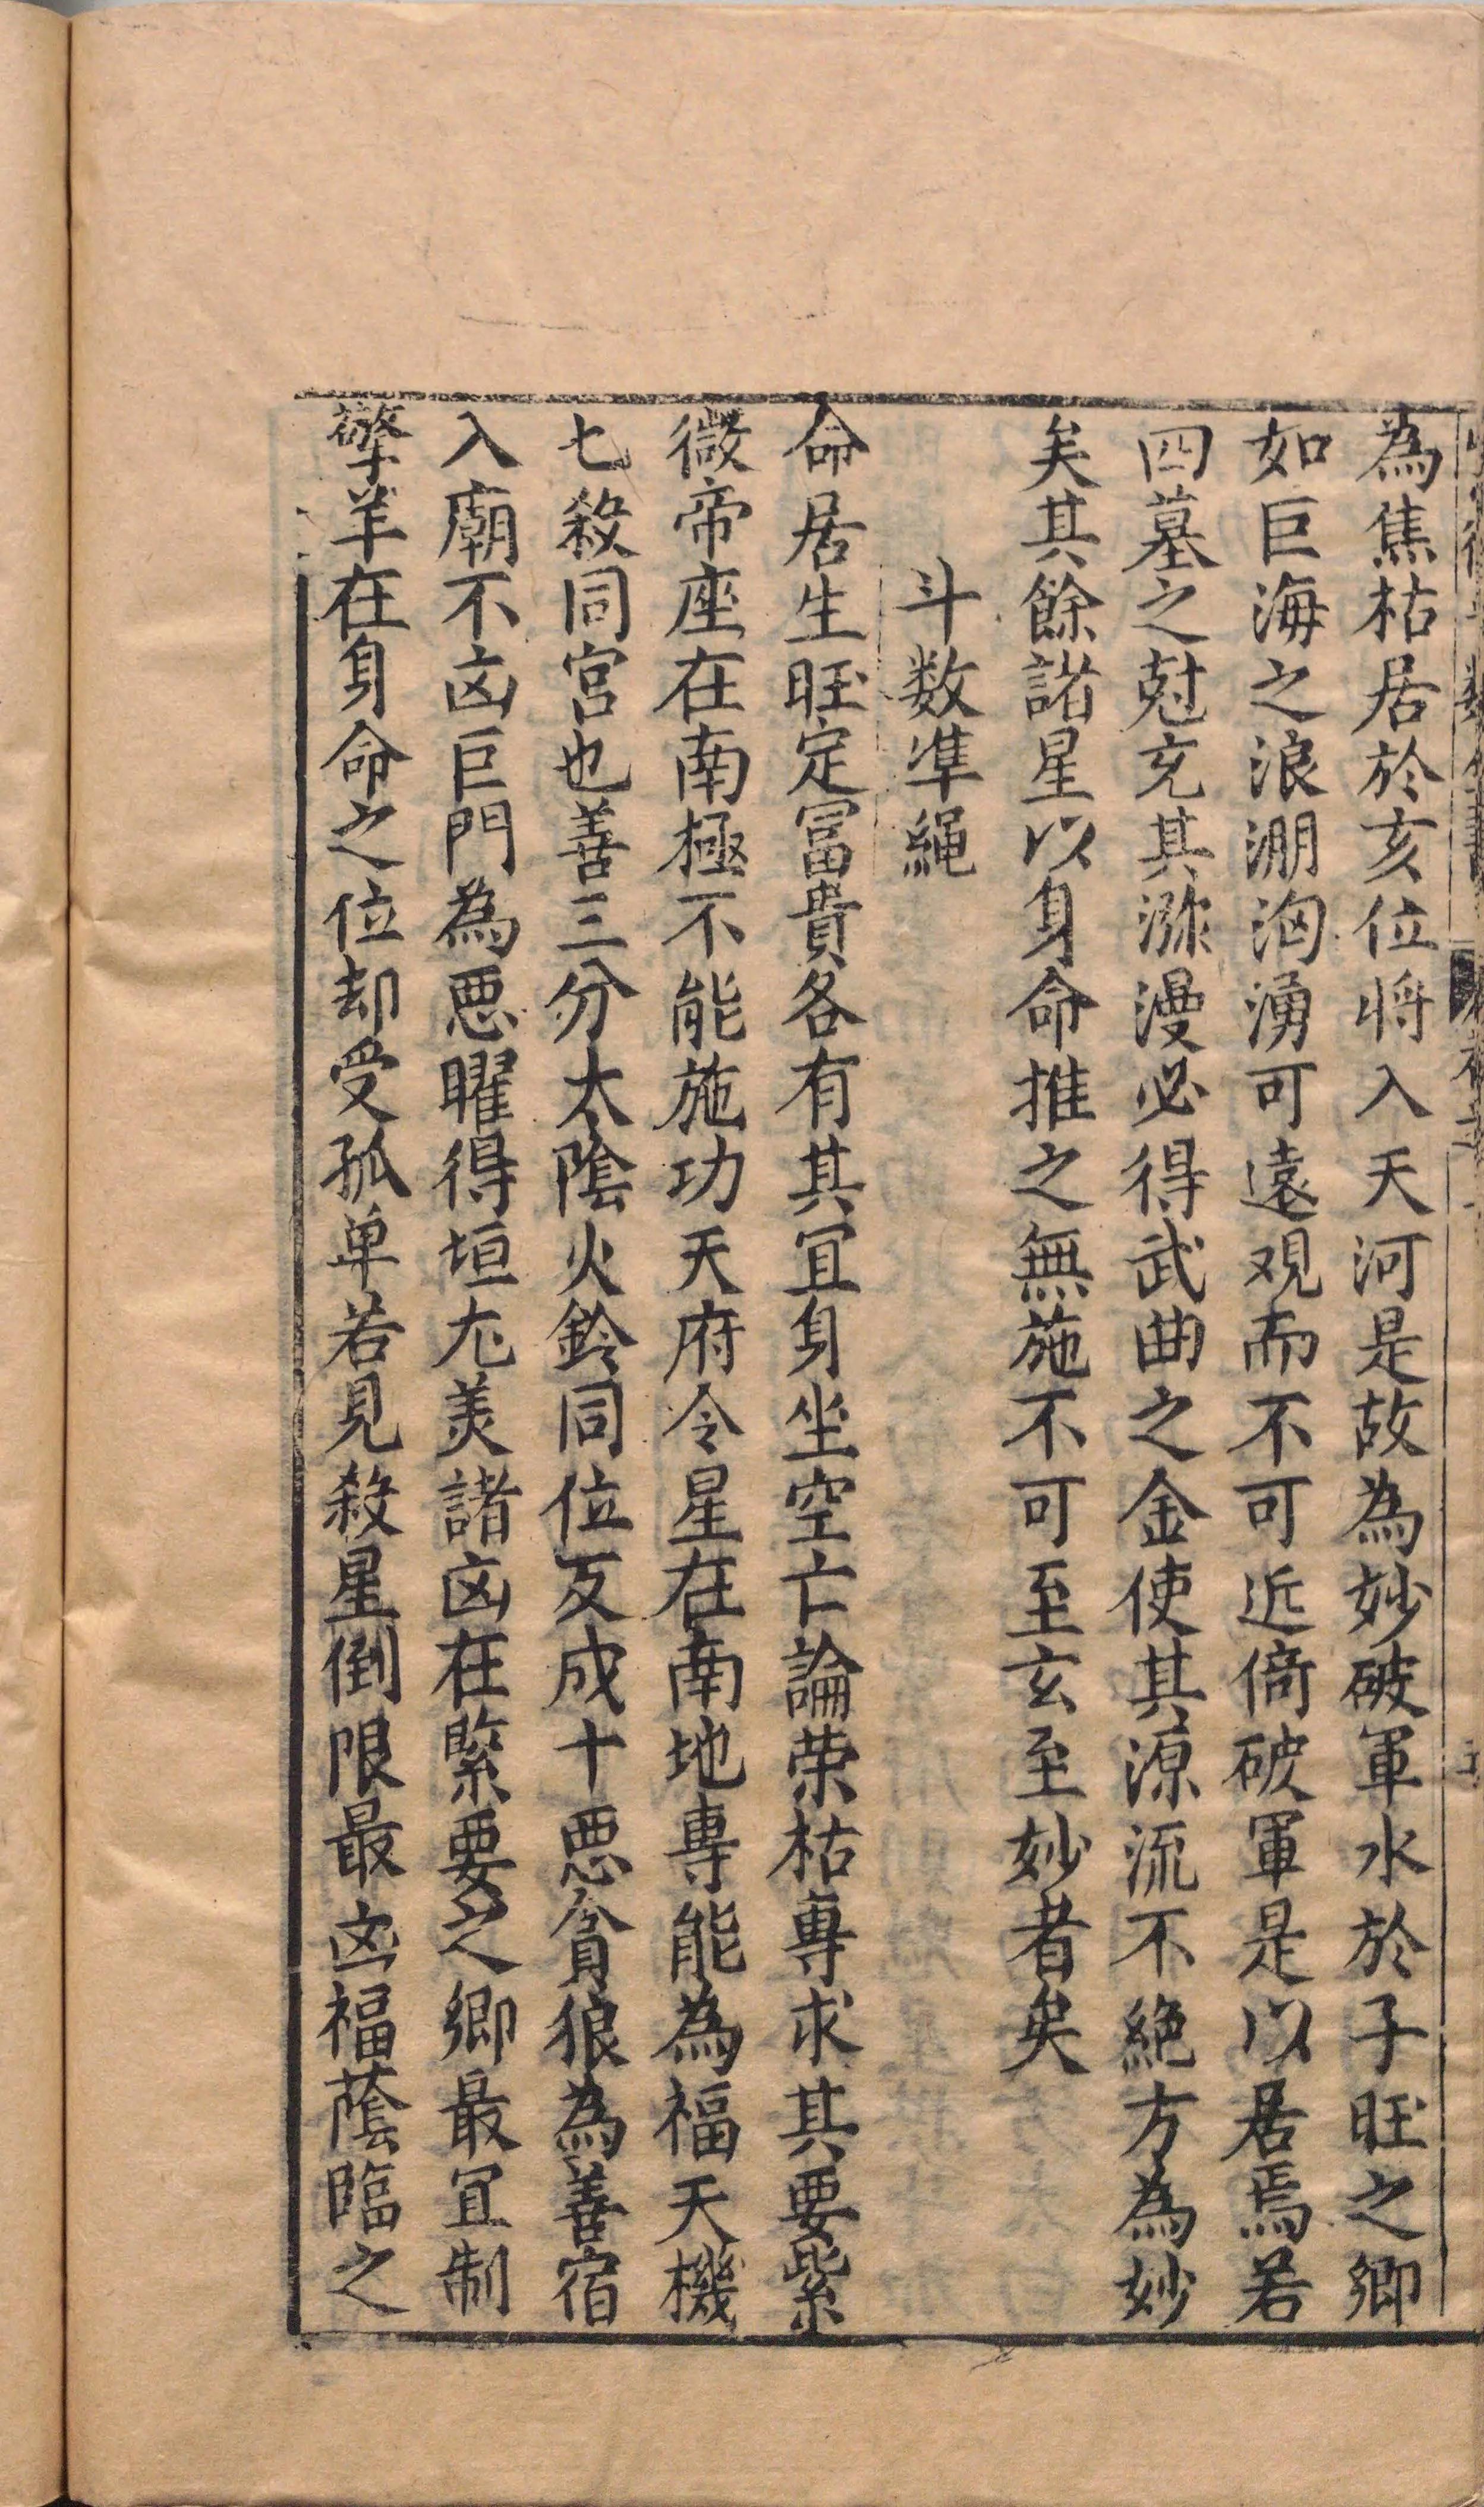 為焦枯居於亥位將入天河是故為妙破軍水於子旺之鄉
如巨海之浪淜洶湧可遠观而不可近倚破軍是以居焉若
四墓之尅充其濔漫必得武曲之金使其源流不絶方為妙
矣其餘諸星以身命推之無施不可至玄至妙者矣
斗数凖繩
命居生旺定冨貴各有其宜身坐空亡論荣枯專求其要紫
微帝座在南極不能施功天府令星在南地專能為福天機
七殺同宫也善三分太陰火鈴同位反成十悪貪狼為善宿
入廟不凶巨門為悪曜得垣尤美諸凶在緊要之鄉最宜制
擎羊在身命之位却受孤单若見殺星倒限最凶福蔭臨之